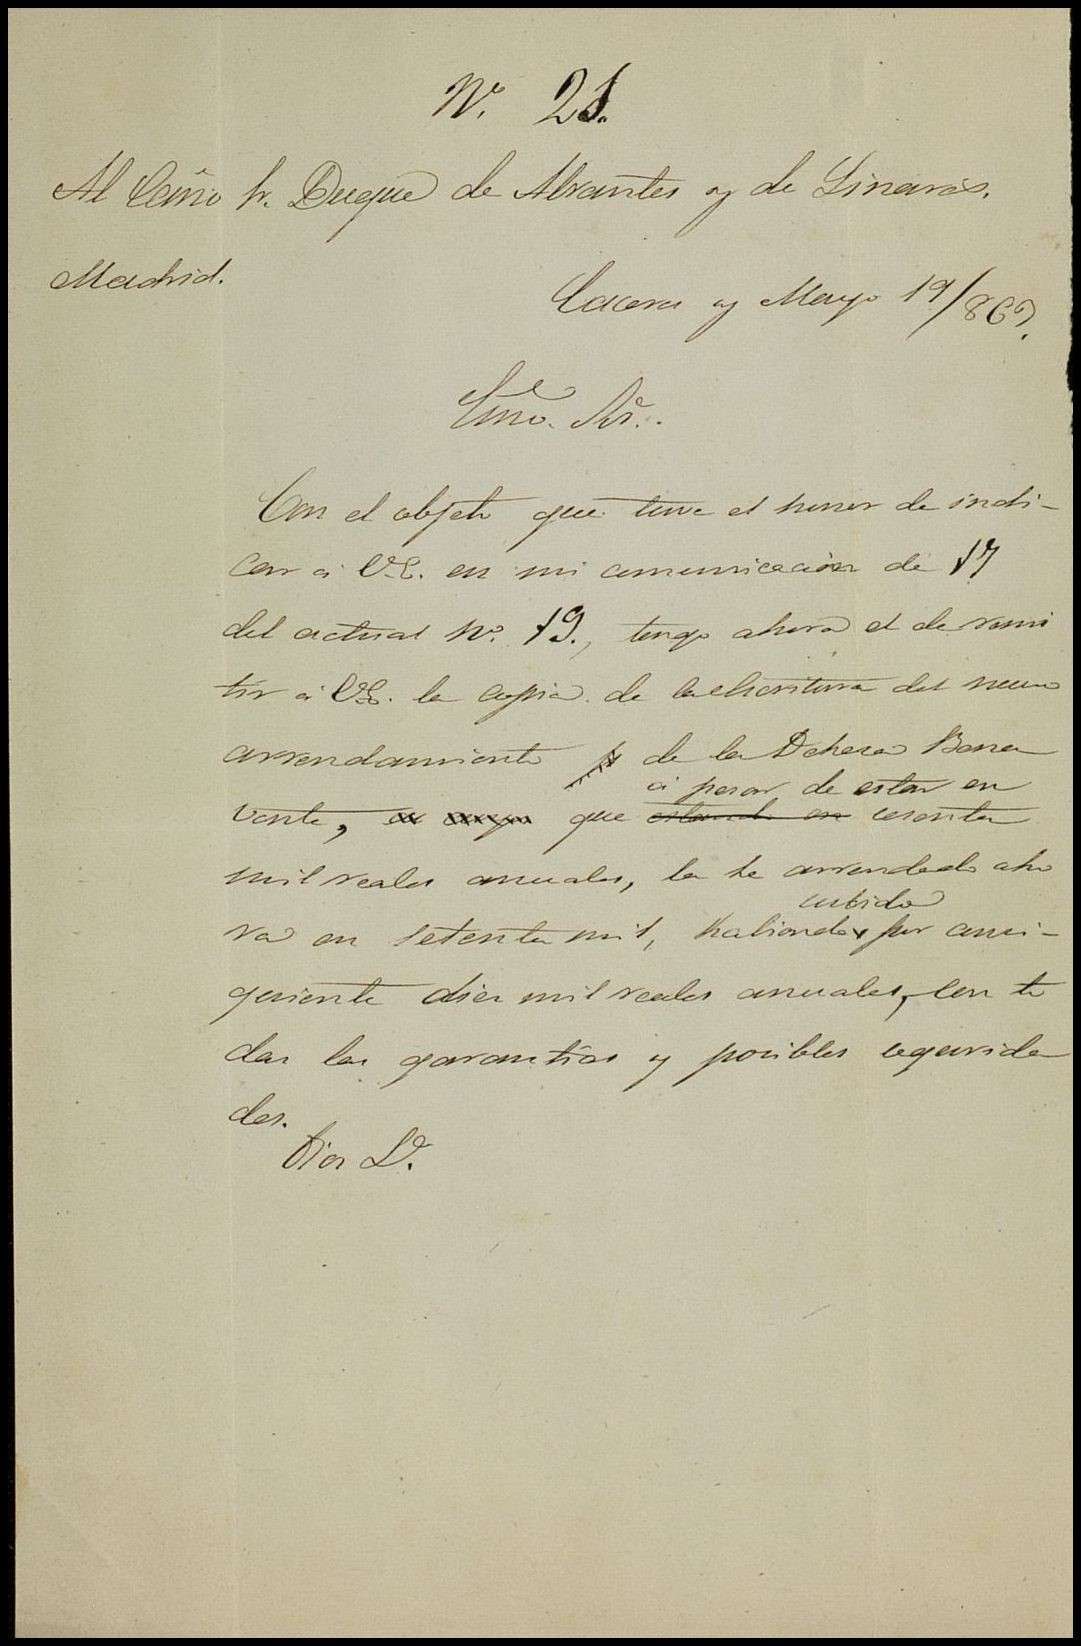 Nº. 21.
Al Exmo Sr. Duque de Abrantes y de Linares.
Madrid.
Caceres y Mayo 19/867.
Exmo. Sr.
Con el objeto que tuve el honor de indi-
car á V.E. en mi comunicacion de 17
del actual nº. 19., tengo ahora el de remi
tir á V.E. la copia de la escritura del nuevo
arrendamiento de la Dehesa Bena
á pesar de estar en
vente, que estando en sesenta
mil reales anuales, la he arrendado aho
subido
ra en setenta mil, habiendo por consi-
guiente diez mil reales anuales, con to
das las garantías y posibles segurida
des.
Dios G.